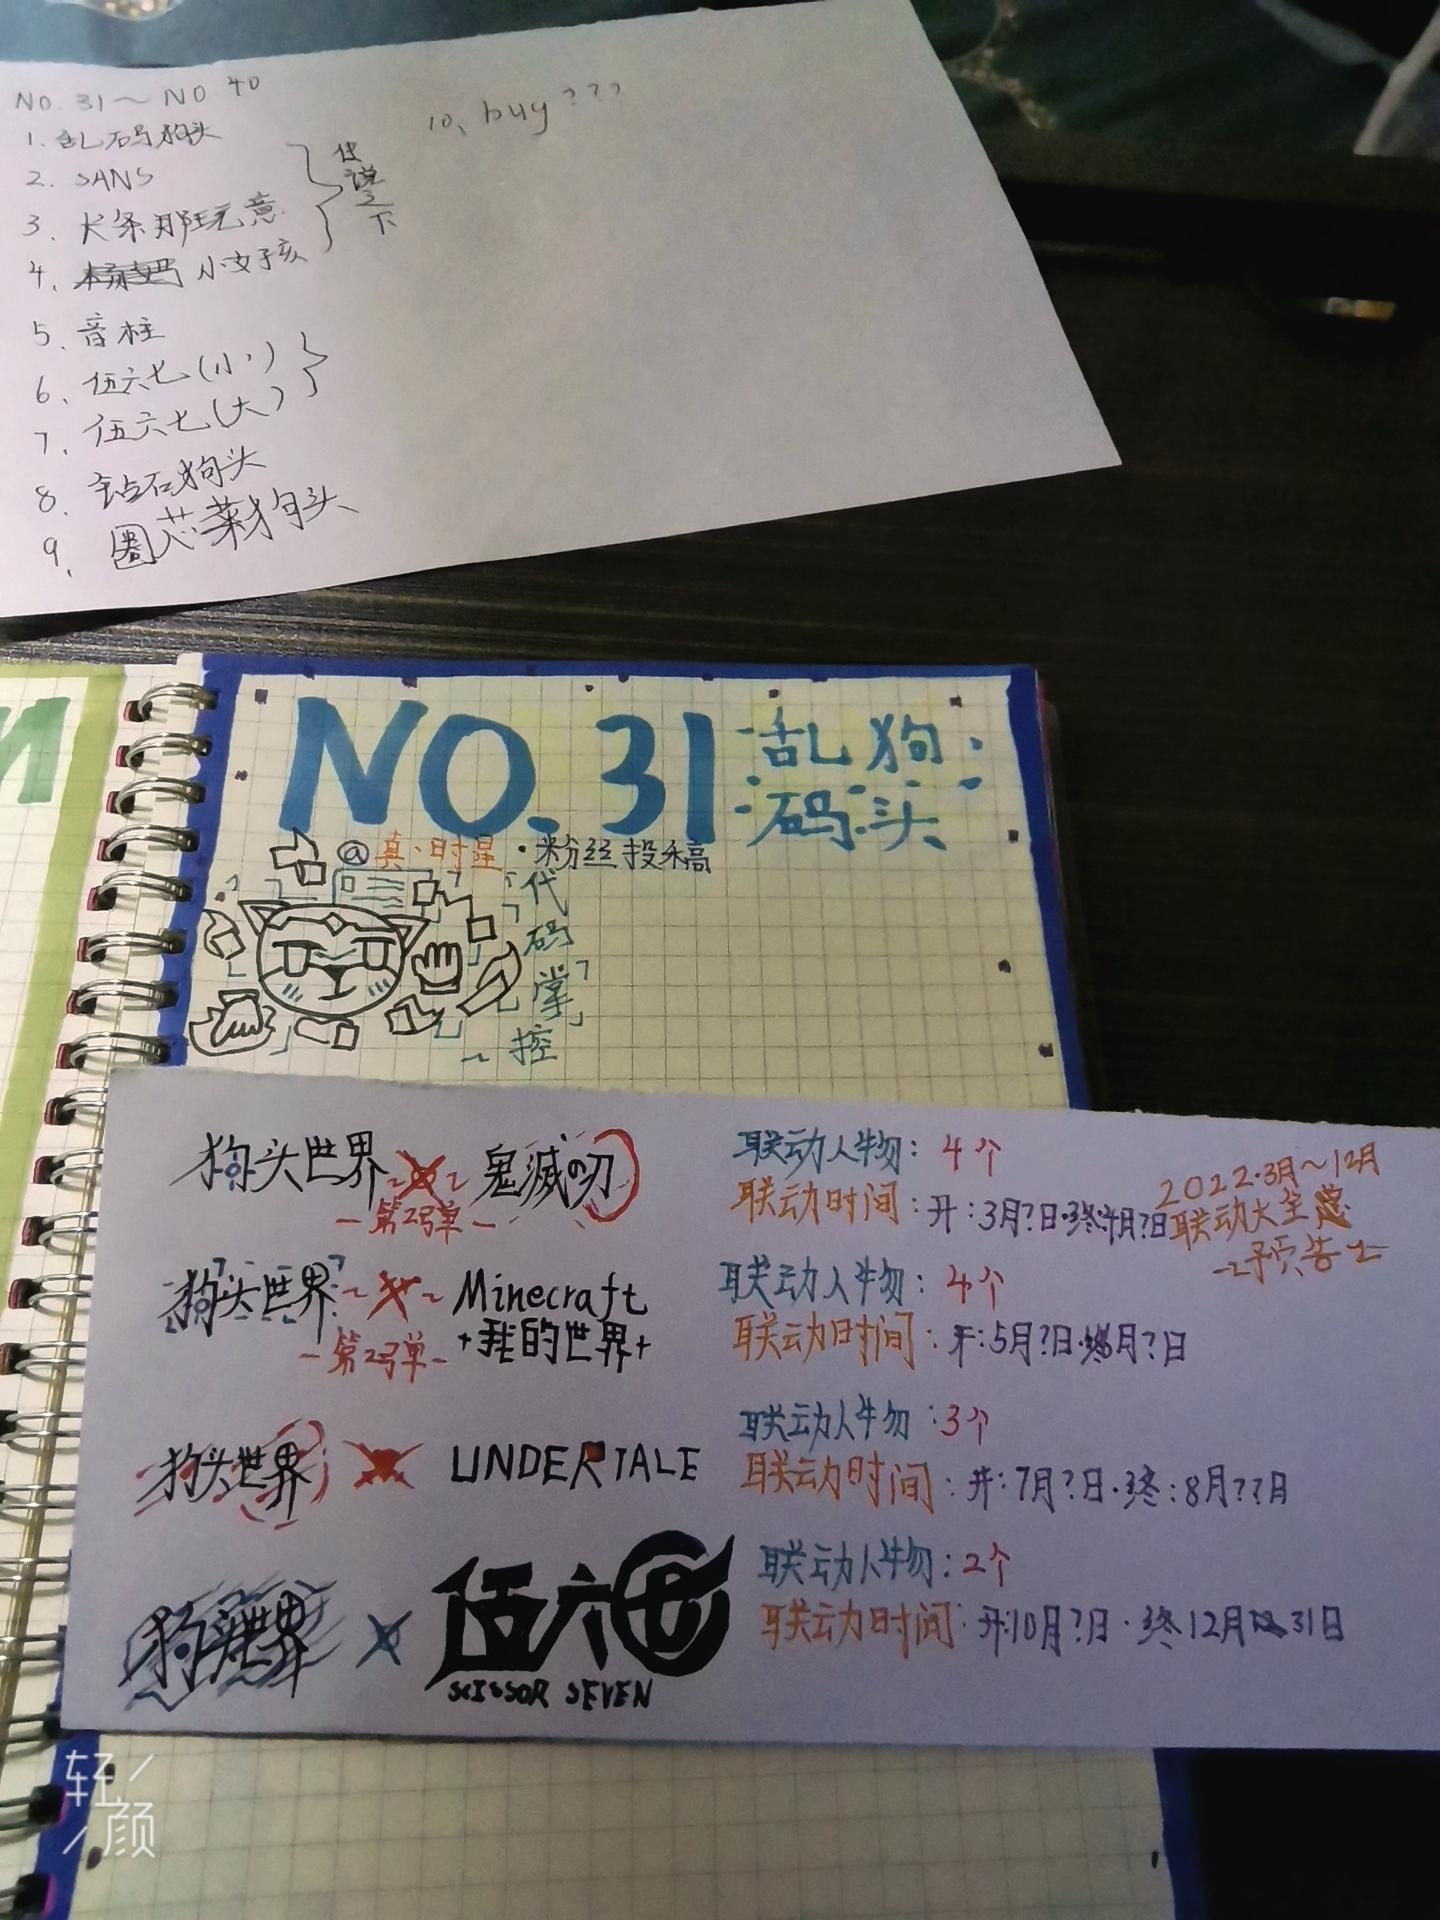 NO.31～NO.40
1.乱码狗头
2.SANS
3、犬系那玩意
4、小女孩
传说之下
5、音柱
6、伍六七(小)
7、伍六七(大)
8、钻石狗头
9、圈芯菜狗头
10、buy???
NO.31
乱码狗头
@真·时星·粉丝投稿
代码掌控
狗头世界×鬼滅の刃
-第2弹-
联动人物：4个
联动时间：开：3月?日·终:4月?日
2022·3月～12月
联动大全总
预告
狗头世界×Minecraft
-第2弹-
+我的世界+
联动人物：4个
联动时间：开:5月?日·终6月?日
狗头世界×UNDERTALE
联动人物：3个
联动时间：开:7月?日·终:8月??日
狗头世界×伍六七
SCISSOR SEVEN
联动人物:2个
联动时间：开:10月?日·终12月31日
轻颜